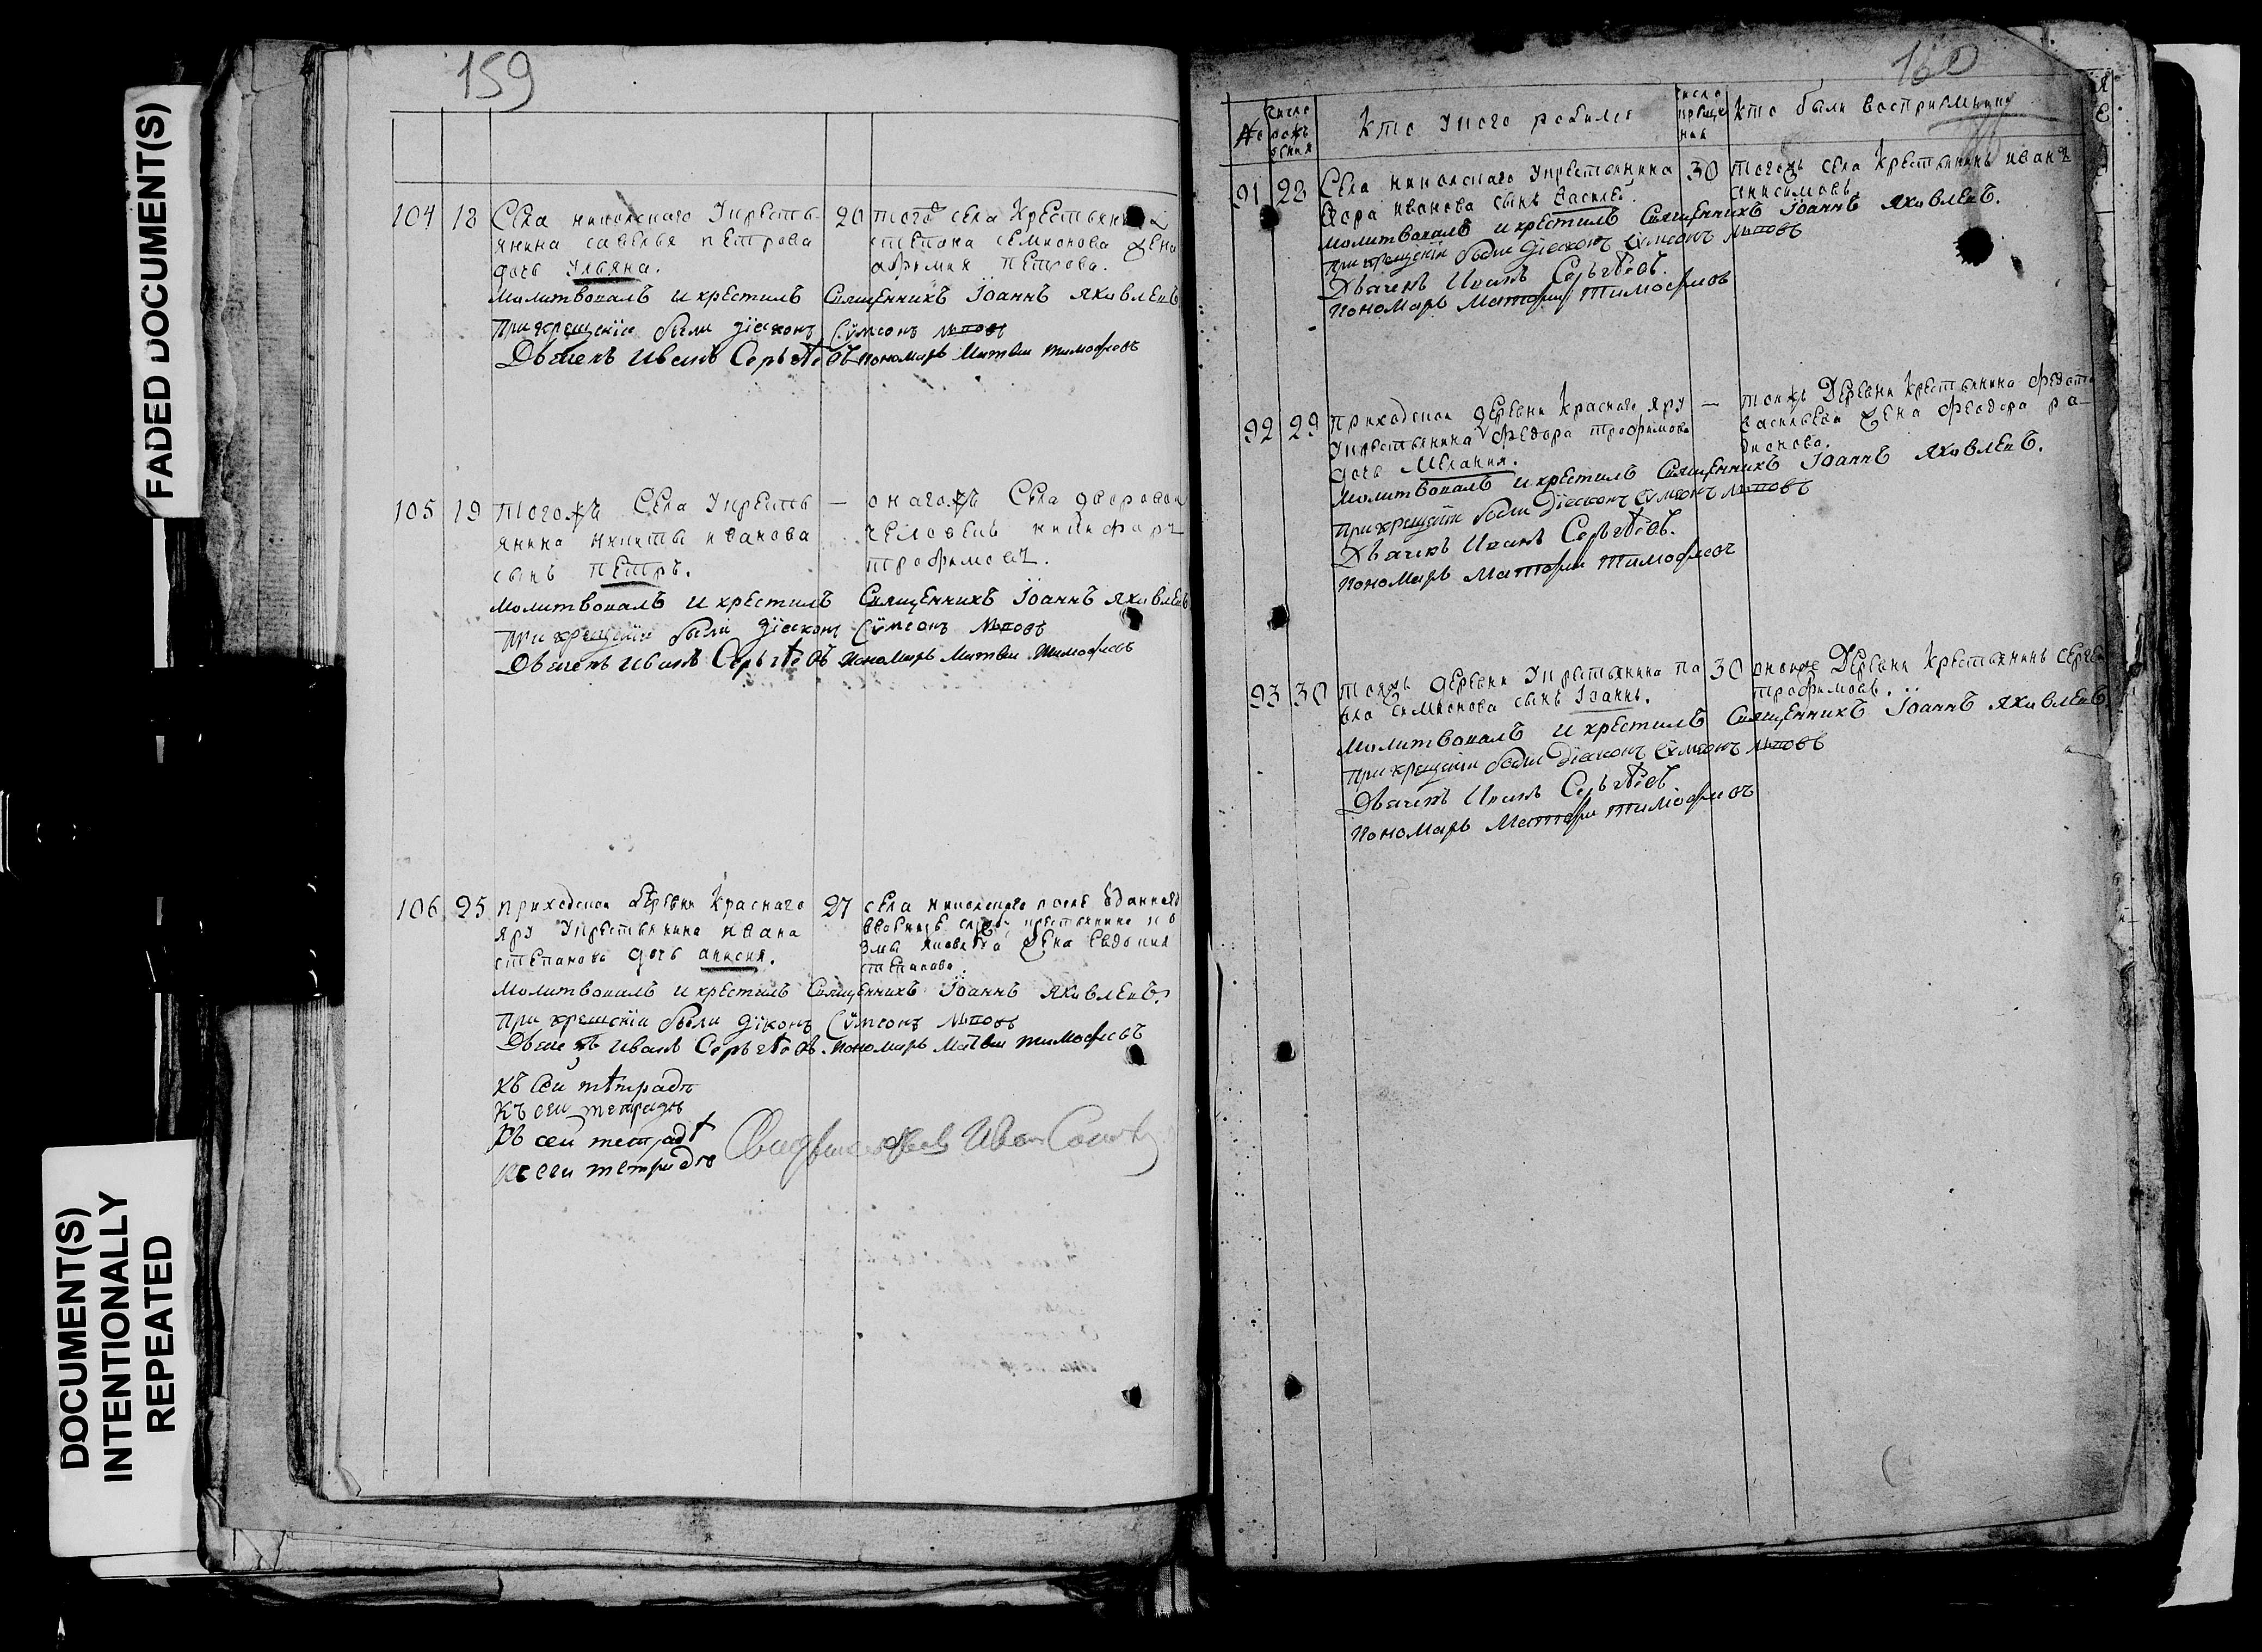 FADED DOCUMENT(S)
DOCUMENT(S)
INTENTIONALLY
REPEATED
159
104 18 Села никольскаго Укресть-
янина савелья петрова
дочь Ульяна.
20 тогожъ села Крестьянина
степана семионова жена
ефимия петрова.
Молитвовалъ и хрестилъ Священникъ Iоаннъ Яковлевъ
При крещенiи были дiаконъ Сvмеонъ
Дьячекъ Иванъ Сергѣевъ пономарь Матвеи тимофеевъ
105 19 тогожъ Села Укресть
янина никиты иванова
сынъ петръ.
— оногожъ Села дворовои
человекъ никифоръ
трофимовъ.
Молитвовалъ и хрестилъ Священникъ Iоаннъ Яковлевъ
При крещенiи были дiаконъ Сvмеонъ
Дьячекъ Иванъ Сергѣевъ пономарь Матвеи тимофеевъ
106 25 приходскои деревни Краснаго
яру Укрестьянина ивана
степанова дочь анисия.
27 села никольскаго
жена Евдокия
степанова.
Молитвовалъ и хрестилъ Священникъ Iоаннъ Яковлевъ.
При крещенiи были дiконъ Сvмеонъ
Дьячекъ Иванъ Сергѣевъ пономарь Матвеи тимофеевъ
къ сеи тѣтради
къ сеи тетради
Къ сеи тетрадѣ
къ сеи тетради
Иванъ
160
№ число рожъ дения
Кто Укого родился
число крещения
Кто были восприемники
91 28 Села никольскаго Укрестьянина
иванова сынъ василеи.
30 тогожъ села Крестьянинъ иванъ
анисимовъ.
Молитвовалъ и хрестилъ Священникъ Iоаннъ Яковлевъ.
При крещенiи были дiаконъ Сvмеонъ
Дьячекъ Иванъ Сергѣевъ.
пономарь Матфеи Тимофеевъ
92 29 приходскои деревни Краснаго яру
Укрестьянина федора трофимова
дочь Мелания.
— тоижъ Деревни Крестьянина федота
васильева жена феодора ра-
дионова.
Молитвовалъ и хрестилъ Священникъ Iоаннъ Яковлевъ.
При крещенiи были Дiаконъ Сvмеонъ
Дьячекъ Иванъ Сергѣевъ.
пономарь Матфеи Тимофеевъ
93 30 тояжъ деревни Укрестьянина па
вла симионова сынъ Iоаннъ.
30 оноиже Деревни Крестьянинъ сергеи
трофимовъ.
Молитвовалъ и хрестилъ Священникъ Iоаннъ Яковлевъ
При крещенiи были Дiаконъ Сvмеонъ
Дьячекъ Иванъ Сергѣевъ
пономарь Матфеи тимофеевъ